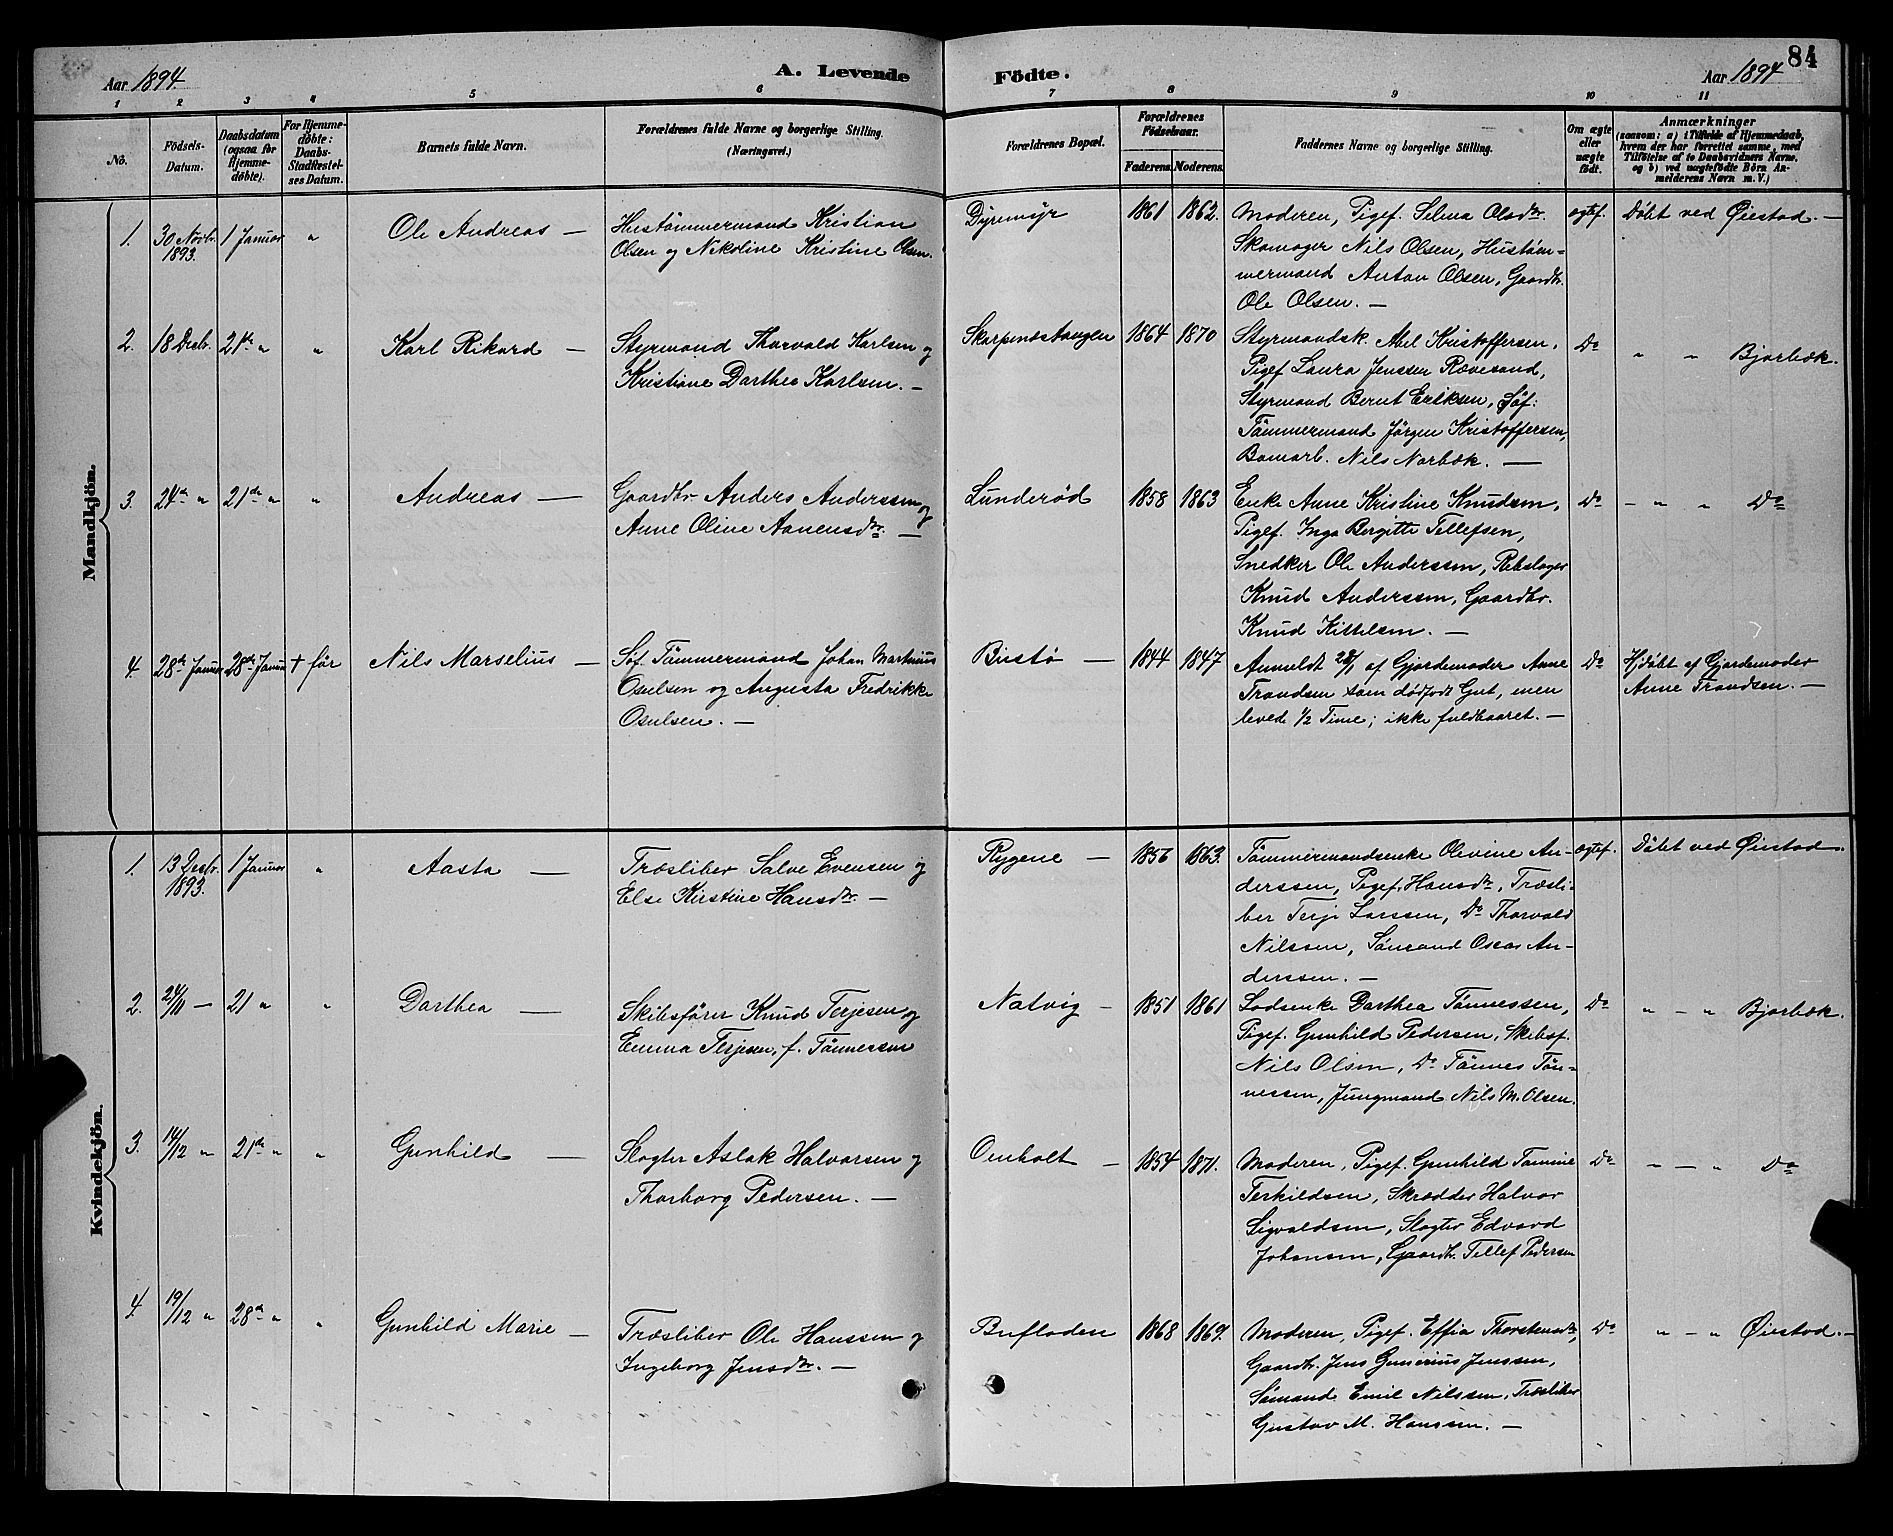 84
Aar 1894. A. Levende Födte. Aar 1894
1 2 3 4 5 6 7 8 9 10 11
No.
Födsels-Datum.
Daabsdatum (ogsaa for Hjemme-døbte).
For Hjemme-døbte: Daabs-Stadfæstel-ses Datum.
Barnets fulde Navn.
Forældrenes fulde Navne og borgerlige Stilling.
(Næringsvei.)
Forældrenes Bopæl.
Forældrenes Födselsaar.
Faderens. Moderens.
Faddernes Navne og borgerlige Stilling.
Om ægte eller uægte født.
Anmærkninger
(saasom: a) i Tilfælde af Hjemmedaab,
hvem der har forrettet samme, med
Tilføielse af to Daabsvidners Navne,
og b) ved uægtefödte Börn An-
melderens Navn m. V.)
Mandkjön.
1. 30 Novbr. 1893. 1 Januar " Ole Andreas —
Hustømmermand Kristian
Olsen og Nikoline Kristine Olsen.
Dyremyr 1861 1862.
Moderen, Pigef. Selma Olsdtr.
Skomager Nils Olsen, Hustøm-
mermand Anton Olsen, Gaardbr.
Ole Olsen. —
ægtef. Døbt ved Øiestad. —
2. 18 Decbr. 21de " " Karl Rikard —
Styrmand Thorvald Karlsen og
Kristiane Darthea Karlsen. —
Skarpnestangen 1864 1870
Styrmandsk. Abel Kristoffersen,
Pigef Laura Jenssen Rævesand,
Styrmand Bernt Eriksen, Søf:
Tømmermand Jørgen Kristoffersen,
Bomarb. Nils Norbæk. —
Do " " Bjorbæk.
3. 24de " 21de " " Andreas —
Gaardbr Anders Anderssen og
Anne Oline Aanensdtr. —
Lunderød 1858 1863
Enke Anne Kristine Knudsen,
Pigef. Inga Bergitte Tellefsen,
Snedker Ole Anderssen, Rebslager
Knud Anderssen, Gaardbr.
Knud Kittelsen. —
Do — " " Do
4. 28de Januar 28de Januar † før Nils Marselius —
Søf. Tømmermand Johan Martinius
Osulsen og Augusta Fredrikke
Osulsen. —
Bustø — 1844 1847
Anmeldt 28/1 af Gjordemoder Anne
Trondsen som dødfødt Gut, men
levede 1/2 Time; ikke fuldbaaret. —
Do Hjdøbt af Gjordemoder
Anne Trondsen. —
Kvindekjön.
1. 13 Decbr. 1893. 1 Januar " Aasta —
Træsliber Salve Evensen og
Else Kirstine Hansdtr. —
Rygene — 1856 1863.
Tømmermandsenke Olevine An-
derssen, Pigef. Hansdtr, Træsli-
ber Terje Larssen, Do Thorvald
Nilssen, Sømand Oscar An-
derssen. —
ægtef. Døbt ved Øiestad.
2. 24/11 — 21 " " Darthea —
Skibsfører Knud Terjesen og
Emma Terjesen, f. Tønnessen
Natvig — 1851 1861
Lodsenke Darthea Tønnessen,
Pigef. Gunhild Pedersen, Skibsf.
Nils Olsen, Do Tønnes Tøn-
nessen, Jungmand Nils M. Olsen.
Do " — " Bjorbæk.
3. 14/12 " 21de " " Gunhild —
Slagter Aslak Halvorsen og
Thorborg Pedersen. —
Omholt — 1854 1871.
Moderen, Pigef. Gunhild Tomine
Terkildsen, Skrædder Halvor
Sigvaldsen, Slagter Edvard
Johansen, Gaardb. Tellef Pedersen
Do " — " Do
4. 19/12 " 28de " " Gunhild Marie —
Træsliber Ole Hanssen og
Ingeborg Jensdtr. —
Bufloden 1868 1869.
Moderen, Pigef. Effia Thorstensdtr,
Gaardb. Jens Gunerius Jenssen,
Sømand Emil Nilssen, Træsliber
Gustav M. Hanssen. —
Do " — " Øiestad. —